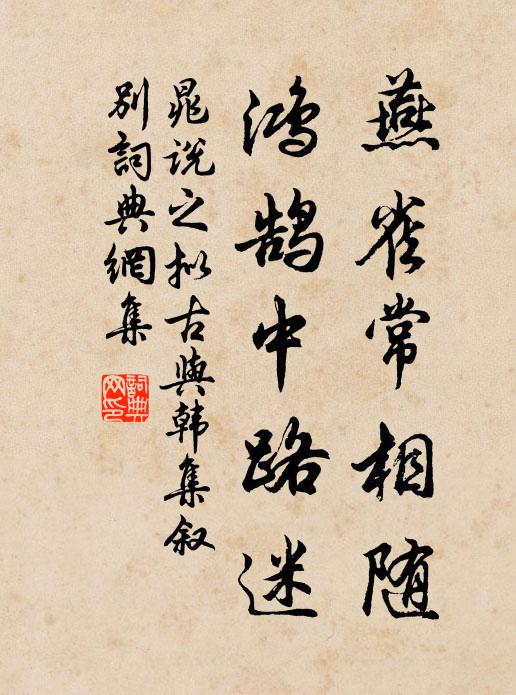 燕雀常相随
鸿鹄中路迷
晁说之拟古與韩集叙
别詞典網集
詞典
网印